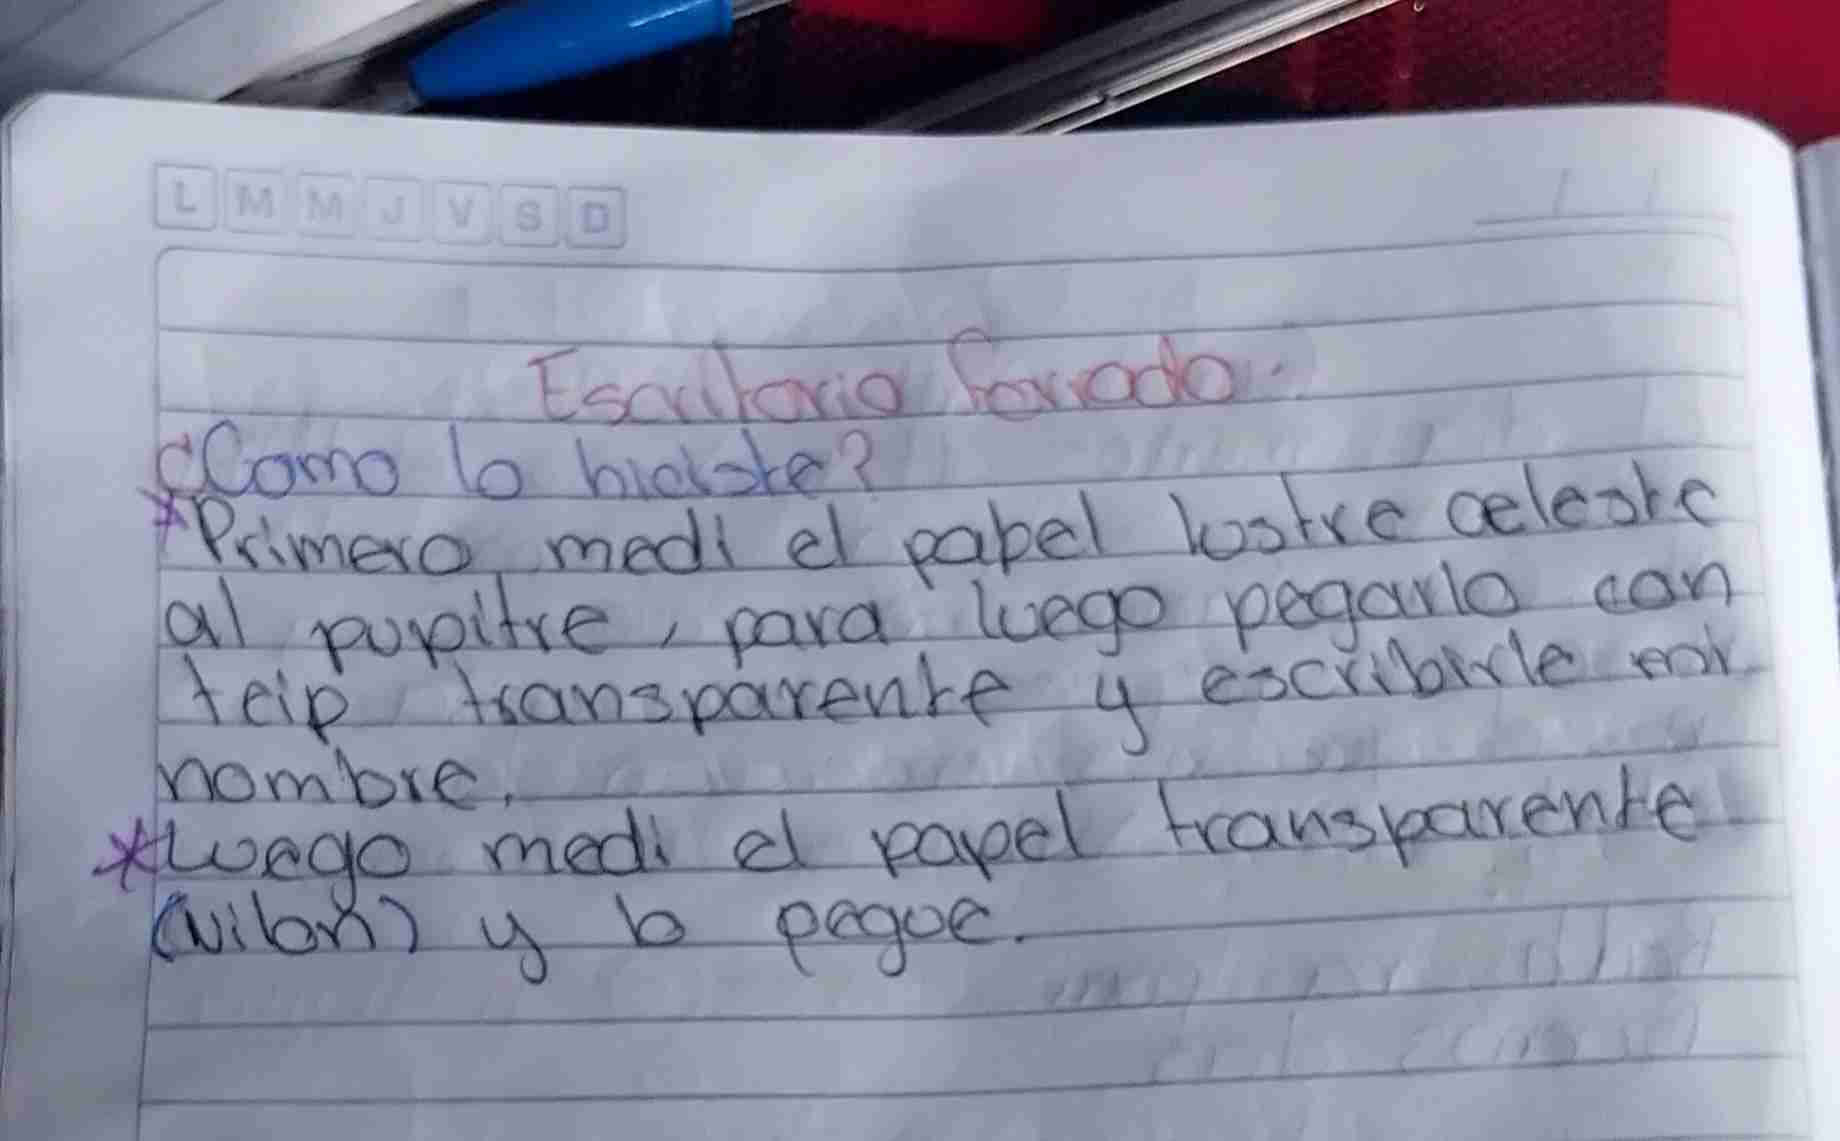 L M M J V S D
Escritorio forrado.
¿Como lo hiciste?
*Primero medi el papel lustre celeste
al pupitre, para luego pegarlo con
teip transparente y escribirle mi
nombre.
*Luego medi el papel transparente
(vilon) y lo pegue.